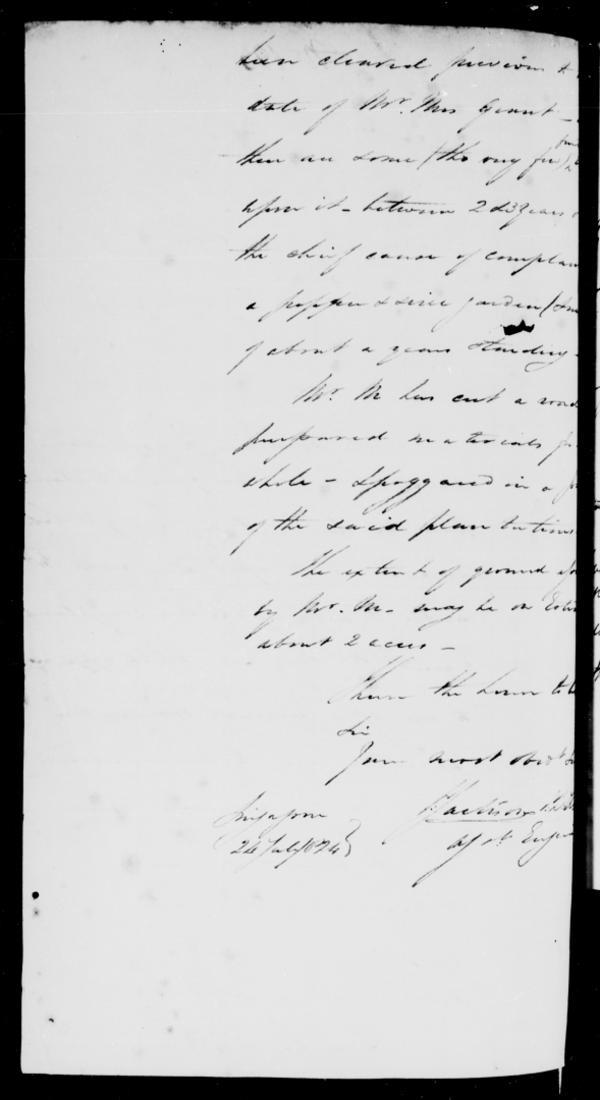 been cleared previous to
date of Mr. Ms Grant -
there are some (tho very few)
upon it - between 2 & 3 years
the chief cause of complain
a pepper & sirie garden
of about a years standing -
Mr. M has cut a road
prepared materials
while -
of the said plantations
The extent of ground
by Mr. M - may be on
about 2 acres -
I have the honor to
Sir
Your most obdt
Singapore
26 July 1824
Jackson
Asst. Engr